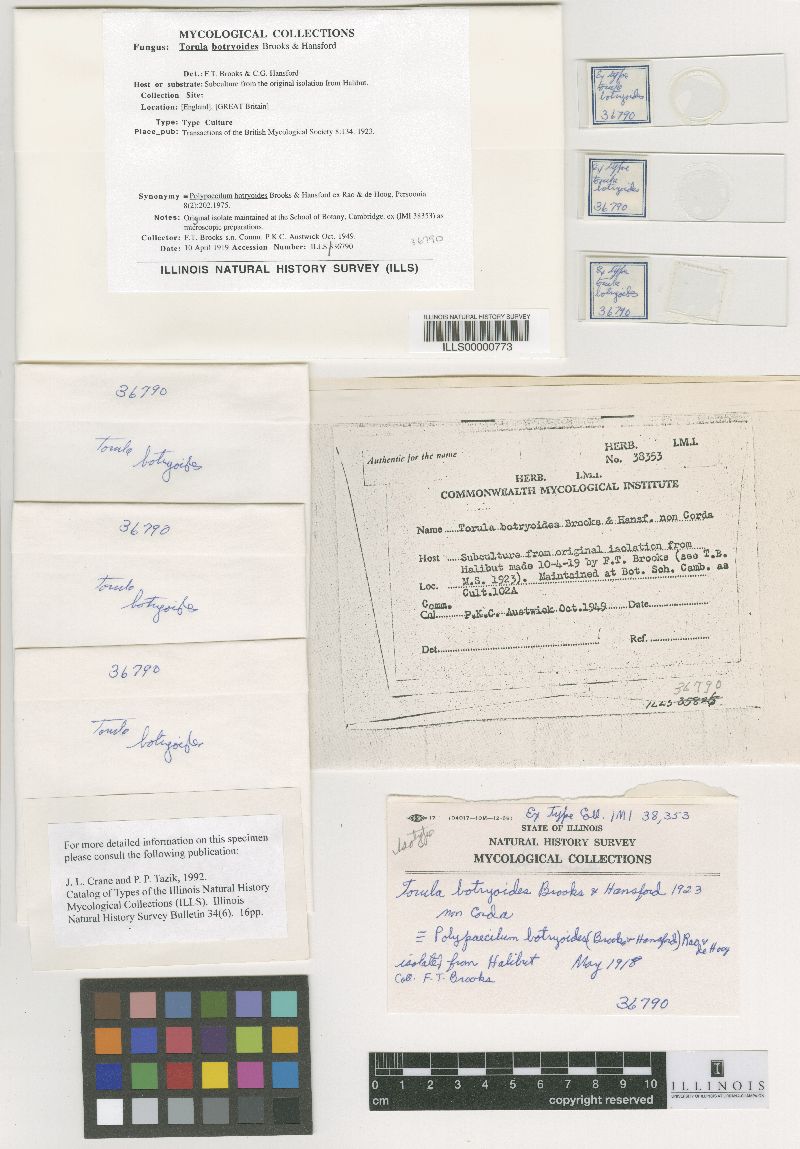 MYCOLOGICAL COLLECTIONS
Fungus: Torula botryoides Brooks & Hansford
Det.: F.T. Brooks & C.G. Hansford
Host or substrate: Subculture from the original isolation from Halibut.
Collection Site:
Location: [England]. [GREAT Britain]
Type: Type Culture
Place_pub: Transactions of the British Mycological Society 8:134. 1923.
Synonymy = Polypaecilum botryoides Brooks & Hansford ex Rao & de Hoog, Persoonia
8(2):202.1975.
Notes: Original isolate maintained at the School of Botany, Cambridge, ex (IMI 38353) as
microscopic preparations.
Collector: F.T. Brooks s.n. Comm. P.K.C. Austwick Oct. 1949.
Date: 10 April 1919 Accession Number: ILLS 36790
36790
ILLINOIS NATURAL HISTORY SURVEY (ILLS)
ILLINOIS NATURAL HISTORY SURVEY
ILLS00000773
Ex type
torula
botryoides
36790
Ex type
torula
botryoides
36790
Ex type
torula
botryoides
36790
36790
Torula
botryoides
36790
Torula
botryoides
36790
Torula
botryoides
For more detailed information on this specimen
please consult the following publication:
J. L. Crane and P. P. Tazik, 1992.
Catalog of Types of the Illinois Natural History
Mycological Collections (ILLS). Illinois
Natural History Survey Bulletin 34(6). 16pp.
Authentic for the name
HERB. I.M.I.
No. 38353
HERB. I.M.I.
COMMONWEALTH MYCOLOGICAL INSTITUTE
Name Torula botryoides Brooks & Hansf. non Corda
Host Subculture from original isolation from
Halibut made 10-4-19 by F.T. Brooks (see T.B.
Loc. M.S. 1923). Maintained at Bot. Sch. Camb. as
Cult.102A
Comm.
Col. P.K.C. Austwick Oct.1949 Date
Det. Ref.
36790
ILLS 35825
17 (D4017—10M—12-64) Ex type Coll. IMI 38,353
Isotype
STATE OF ILLINOIS
NATURAL HISTORY SURVEY
MYCOLOGICAL COLLECTIONS
Torula botryoides Brooks & Hansford 1923
non Corda
≡ Polypaecilum botryoides (Brooks & Hansford) Rao &
de Hoog
isolated from Halibut May 1918
Coll. F.T. Brooks
36790
0 1 2 3 4 5 6 7 8 9 10
cm copyright reserved
I
ILLINOIS
UNIVERSITY OF ILLINOIS AT URBANA-CHAMPAIGN